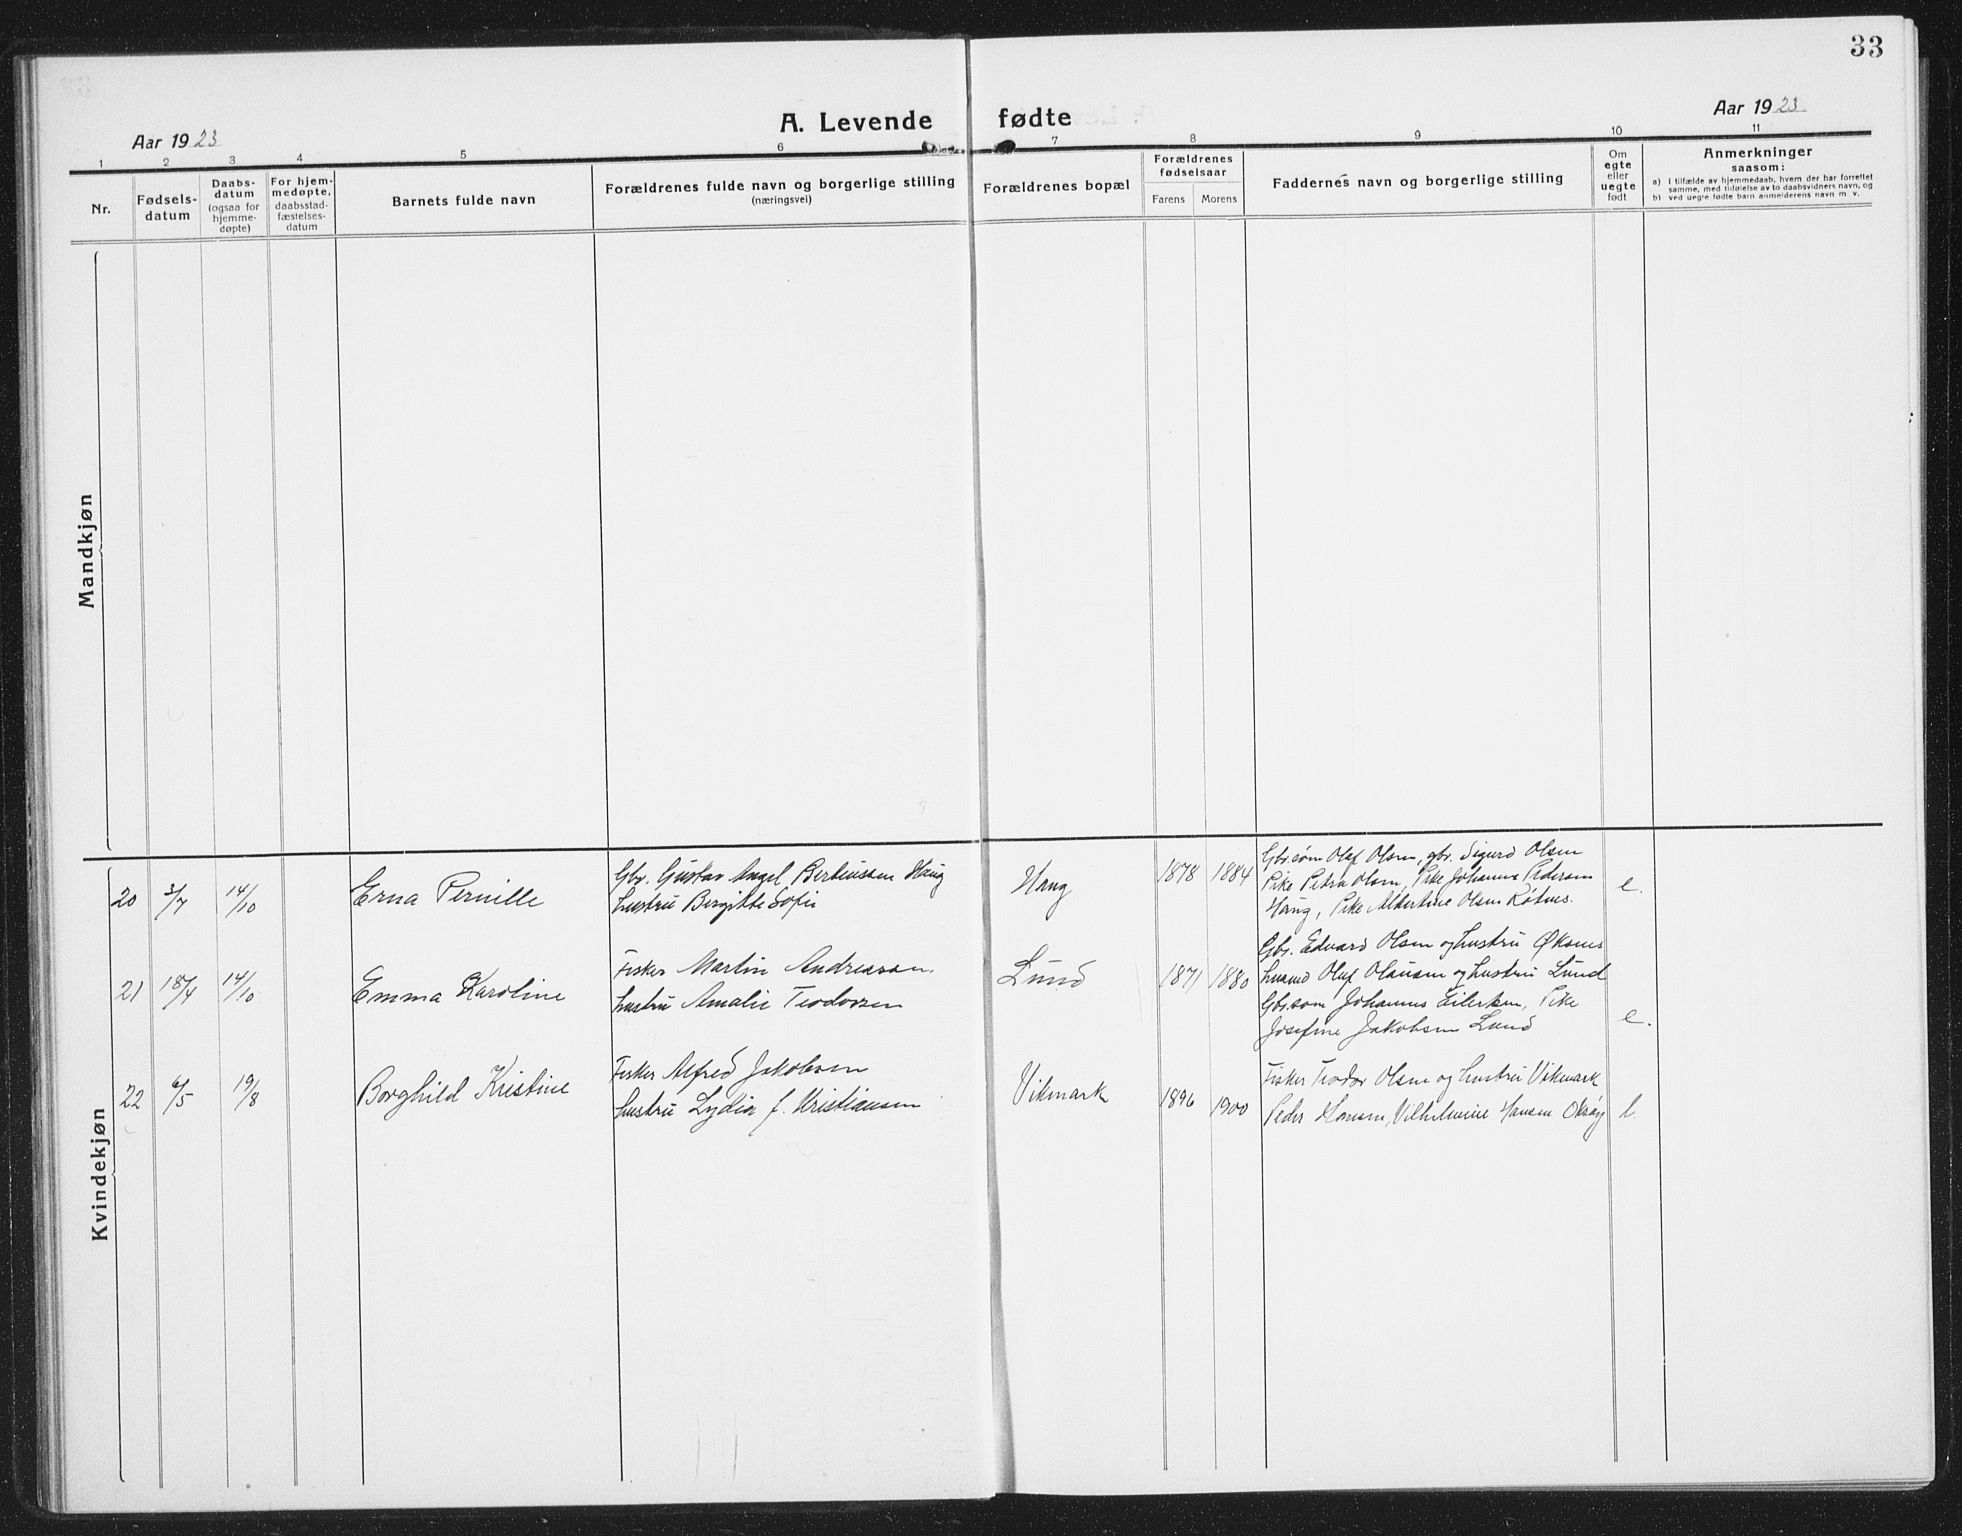 33
A. Levende fødte
Aar 1923
Aar 1923
1 2 3 4 5 6 7 8 9 10 11
Nr.
Fødsels-
datum
Daabs-
datum
(ogsaa for
hjemme-
døpte)
For hjem-
medøpte,
daabsstad-
fæstelses-
datum
Barnets fulde navn
Forældrenes fulde navn og borgerlige stilling
(næringsvei)
Forældrenes bopæl
Forældrenes
fødselsaar
Farens Morens
Faddernes navn og borgerlige stilling
Om
egte
eller
uegte
født
Anmerkninger
saasom:
a) I tilfælde av hjemmedaab, hvem der har forrettet
samme, med tilføielse av to daabsvidners navn, og
b) ved uegte fødte barn anmelderens navn m. v.
Mandkjøn
Kvindekjøn
20 3/7 14/10 Erna Pernille
Gbr. Gustav Angel Bertinssen Haug
hustru Bergitte Sofie
Haug 1878 1884
Gbr.søn Olaf Olsen, gbr. Sigurd Olsen
Pike Petra Olsen, Pike Johanna Pedersen
Haug, Pike Albertine Olsen
e.
21 18/4 14/10 Emma Karoline
Fisker Martin Andreassen,
hustru Amalie Teodorsen
Lund 1871 1880
Gbr. Edvard Olsen og hustru Øksnes
Oluf Olausen og hustru Lund
Gbr.søn Johannes Eilertsen, Pike
Josefine Jakobsen Lund
e.
22 6/5 19/8 Borghild Kristine
Fisker Alfred Jakobsen
hustru Lydia f. Kristiansen
Vikmark 1896 1900
Fisker Teodor Olsen og hustru Vikmark
Peder Hansen, Vilhelmine Hansen
e.